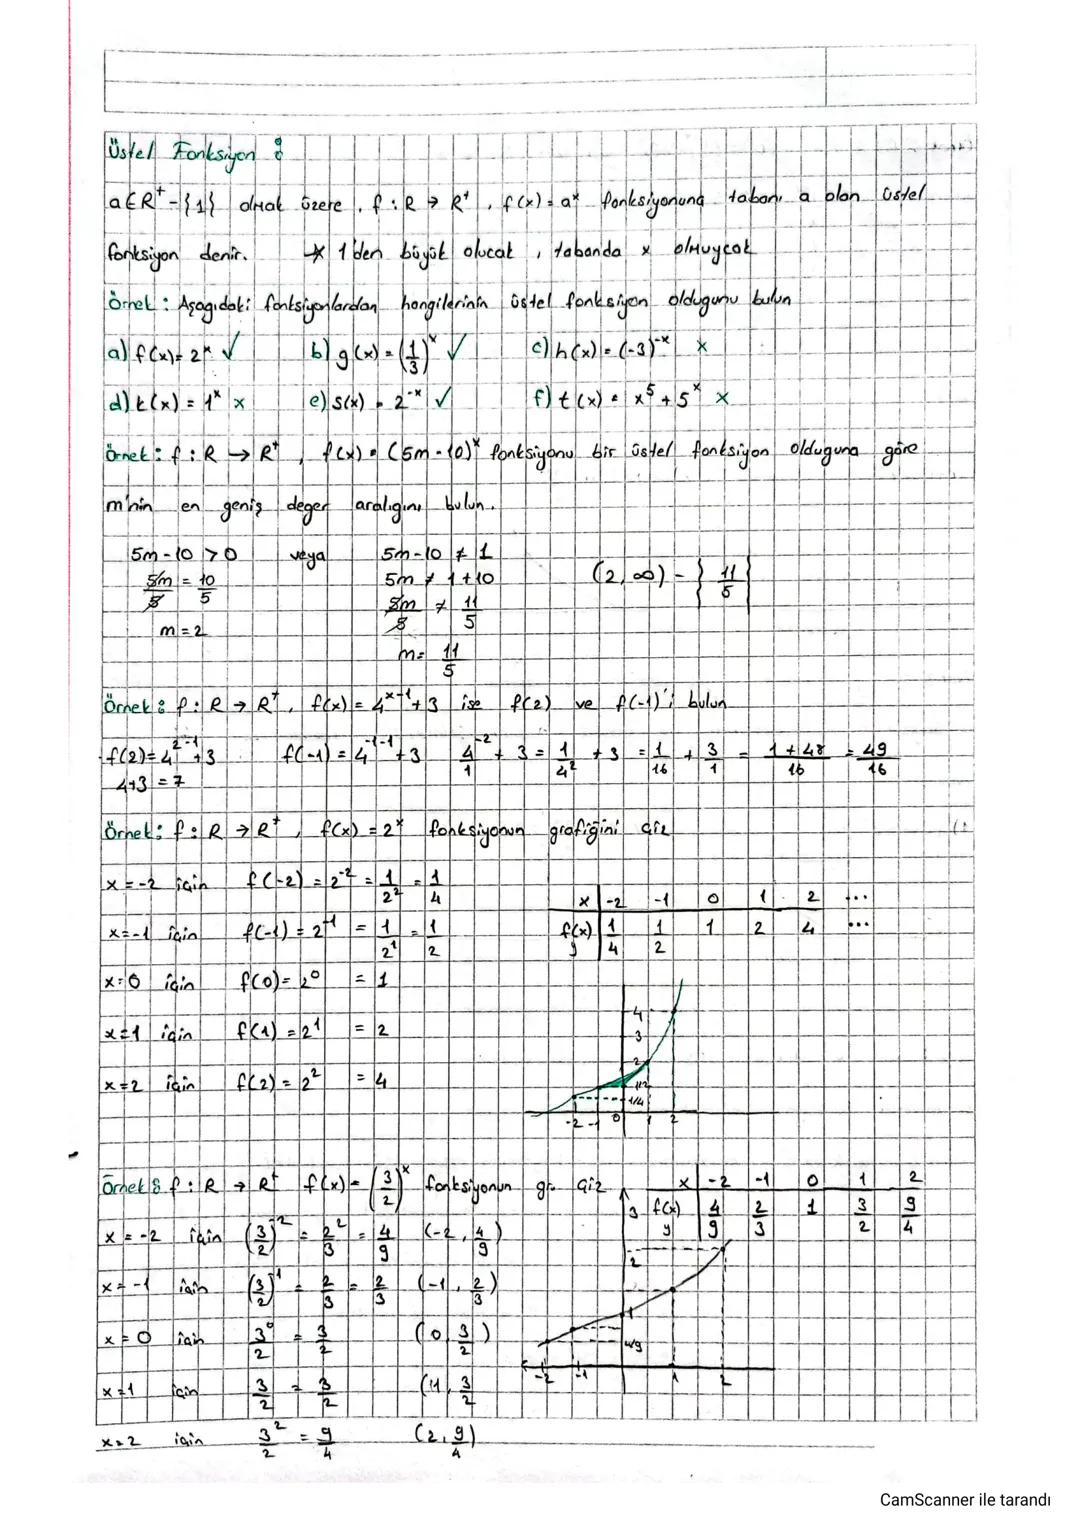 Üstel Fonksiyon :
a∈R⁺-{1} olmak üzere, f:R→R⁺, f(x)=aˣ fonksiyonuna tabanı a olan üstel
fonksiyon denir. * 1'den büyük olucak, tabanda x olmuycak
Örnek: Aşagıdaki fonksiyonlardan hangilerinin üstel fonksiyon oldugunu bulun
a) f(x)=2ˣ ✓ b) g(x)=(1/3)ˣ ✓ c) h(x)=(-3)⁻ˣ x
d) k(x)=1ˣ x e) s(x)=2⁻ˣ ✓ f) t(x)=x⁵+5ˣ x
Örnek: f:R→R⁺, f(x)=(5m-10)ˣ fonksiyonu bir üstel fonksiyon olduguna göre
m'nin en geniş deger aralıgını bulun.
5m-10>0 veya 5m-10≠1
5m/5 = 10/5 5m≠1+10 (2,∞)-{11/5}
m=2 5m/5 ≠ 11/5
m=11/5
Örnek: f:R→R⁺, f(x)=4ˣ⁻¹+3 ise f(2) ve f(-1)'i bulun
f(2)=4²⁻¹+3 f(-1)=4⁻¹⁻¹+3 4⁻²/1+3=1/4²+3=1/16+3/1=1+48/16=49/16
4+3=7
Örnek: f:R→R⁺, f(x)=2ˣ fonksiyonun grafiğini çiz
x=-2 için f(-2)=2⁻²=1/2²=1/4
x -2 -1 0 1 2 ...
x=-1 için f(-1)=2⁻¹=1/2¹=1/2
f(x) y 1/4 1/2 1 2 4 ...
x=0 için f(0)=2⁰=1
x=1 için f(1)=2¹=2
x=2 için f(2)=2²=4
4
3
2
1/2
1/4
-2 -1 0 1 2
Örnek: f:R→R⁺ f(x)=(3/2)ˣ fonksiyonun gr. çiz
x -2 -1 0 1 2
f(x) y 4/9 2/3 1 3/2 9/4
x=-2 için (3/2)⁻²=2²/3=4/9 (-2,4/9)
x=-1 için (3/2)⁻¹=2/3=2/3 (-1,2/3)
x=0 için 3⁰/2=3/2 (0,3/2)
x=1 için 3/2=3/2 (1,3/2
x=2 için 3²/2=9/4 (2,9/4)
3
2
1
4/9
-2 -1 1 2
CamScanner ile tarandı